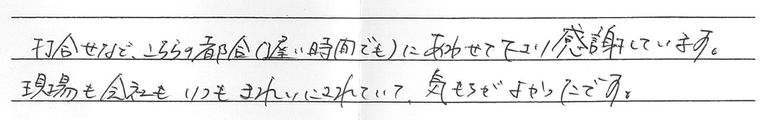 打合せなど、こちらの都合(遅い時間でも)にあわせて下さり感謝しています。
現場も会社もいつもきれいにされていて、気もちがよかったです。